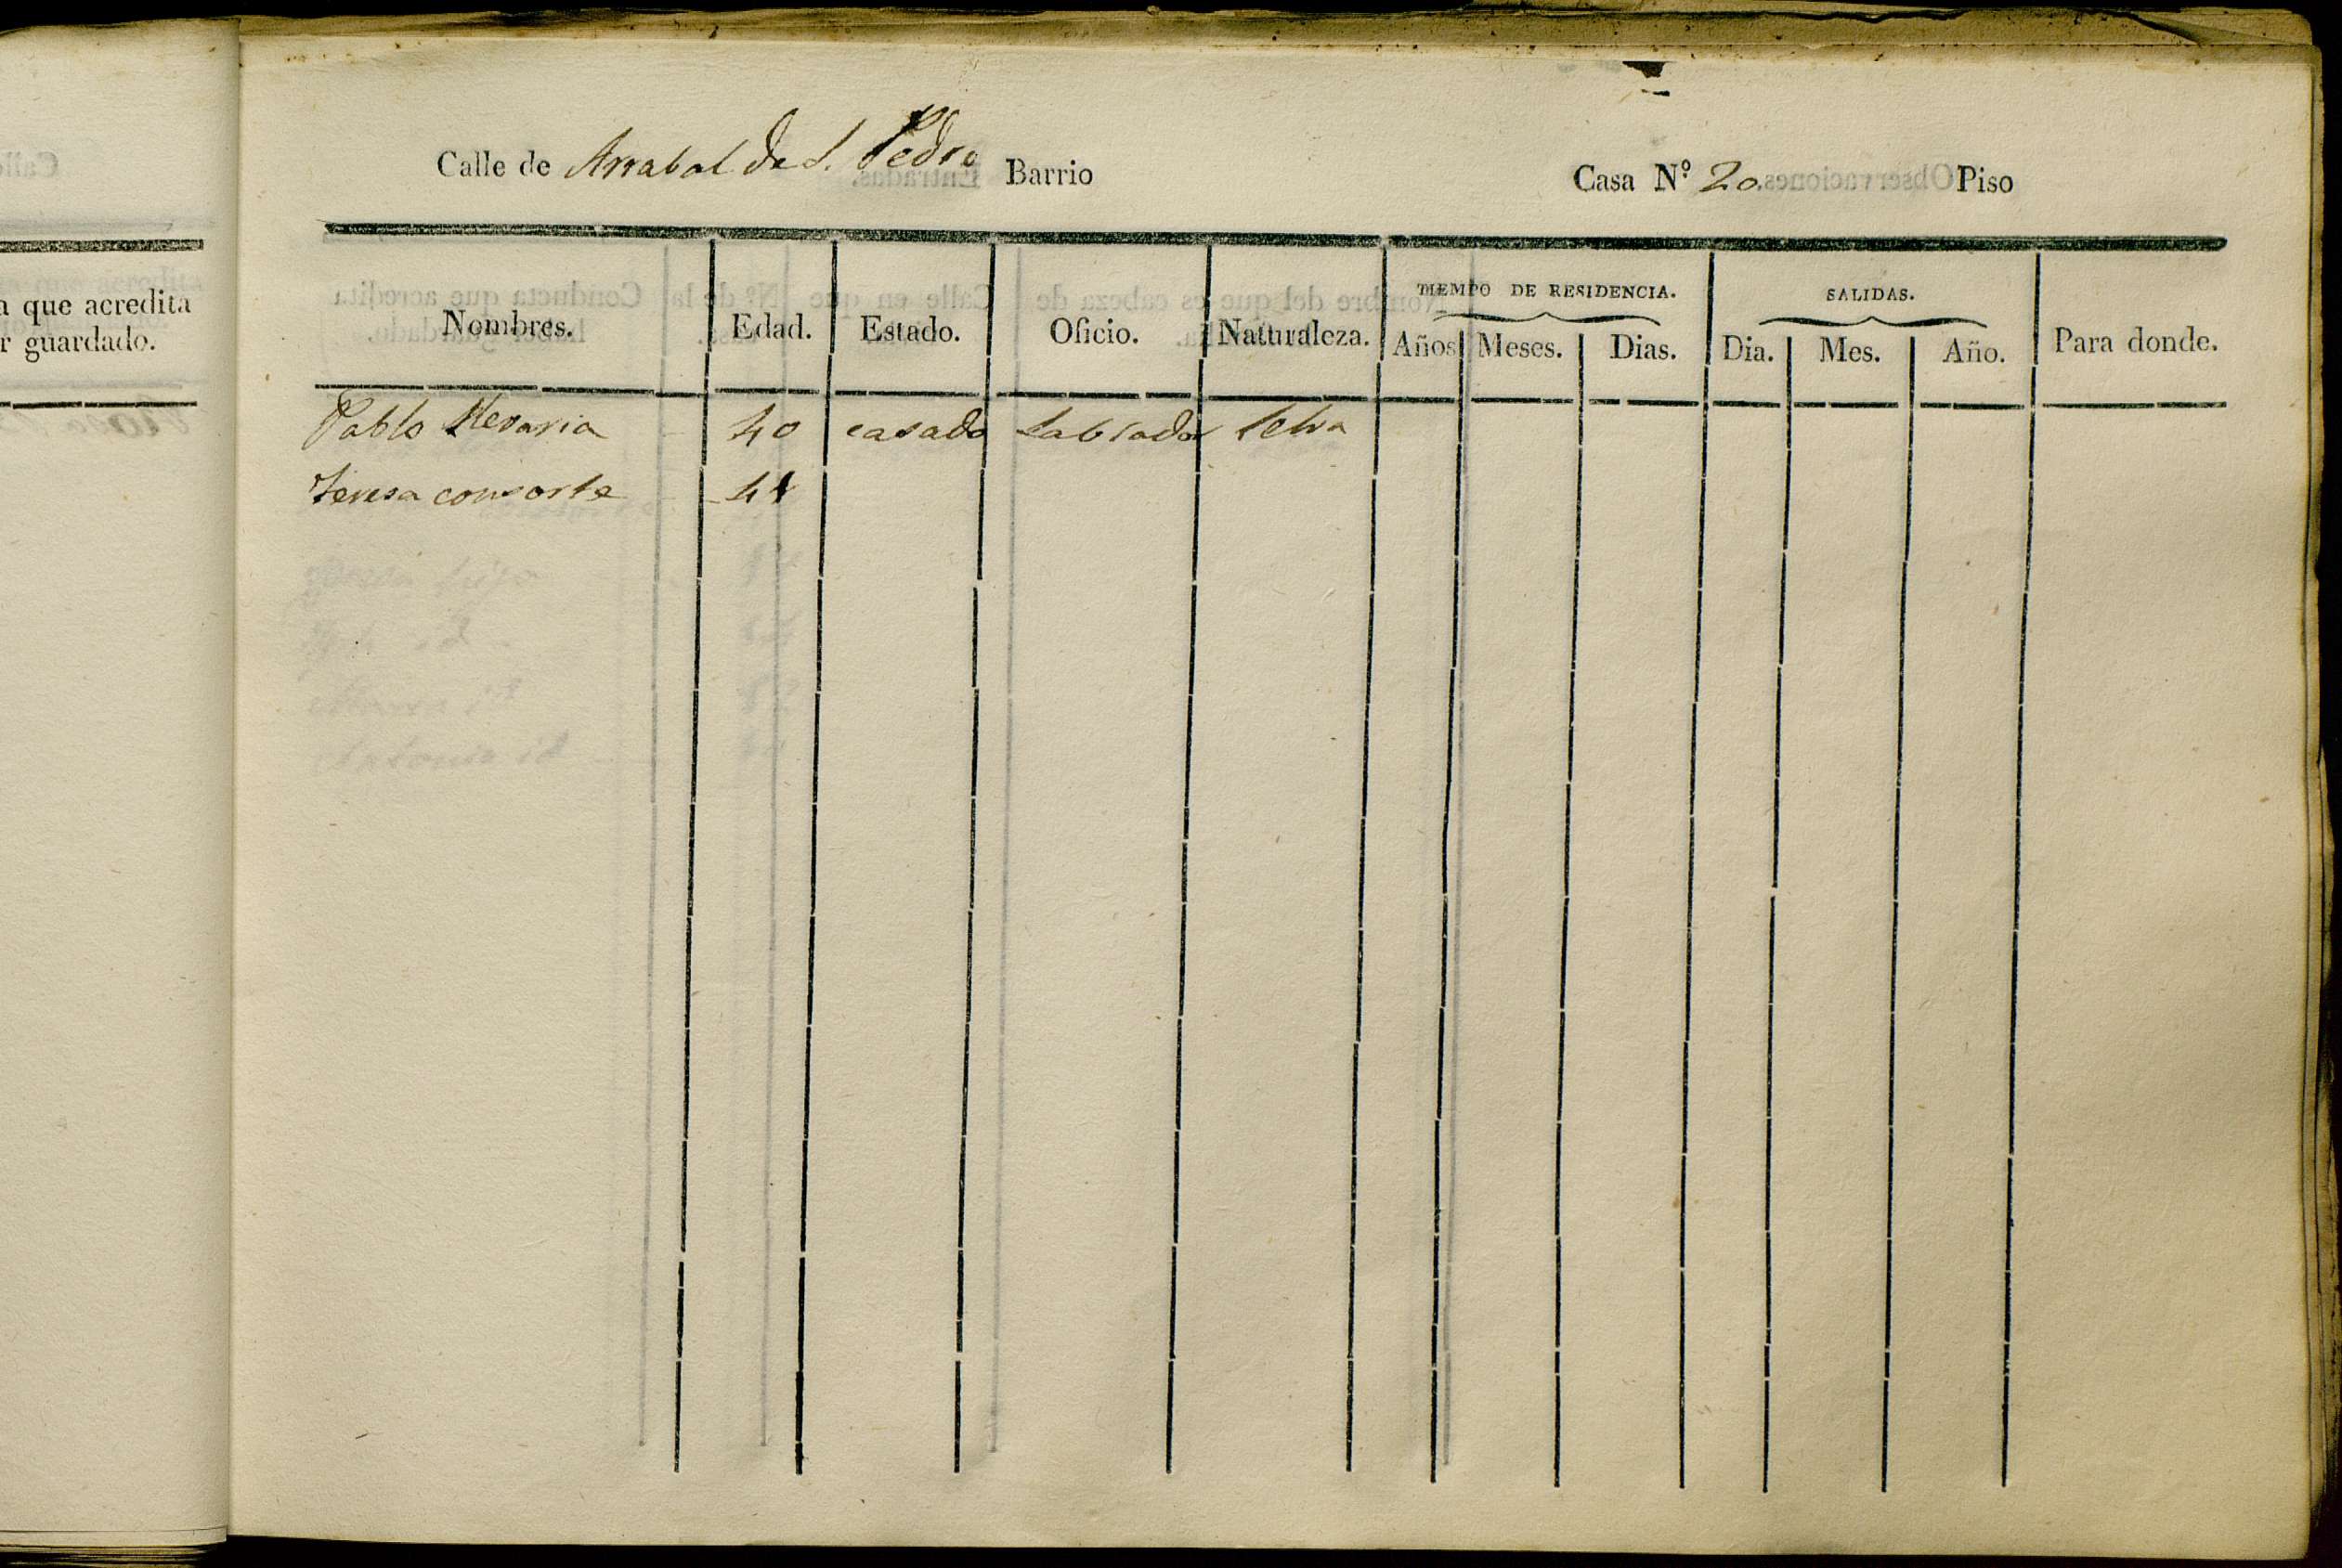 a que acredita
r guardado.
Calle de Arrabal de S. Pedro Barrio Casa N.º 20. Piso
Nombres. Edad. Estado. Oficio. Naturaleza. TIEMPO DE RESIDENCIA. Años Meses. Dias. SALIDAS. Dia. Mes. Año. Para donde.
Pablo 40 casado Labrador Selva
Teresa consorte